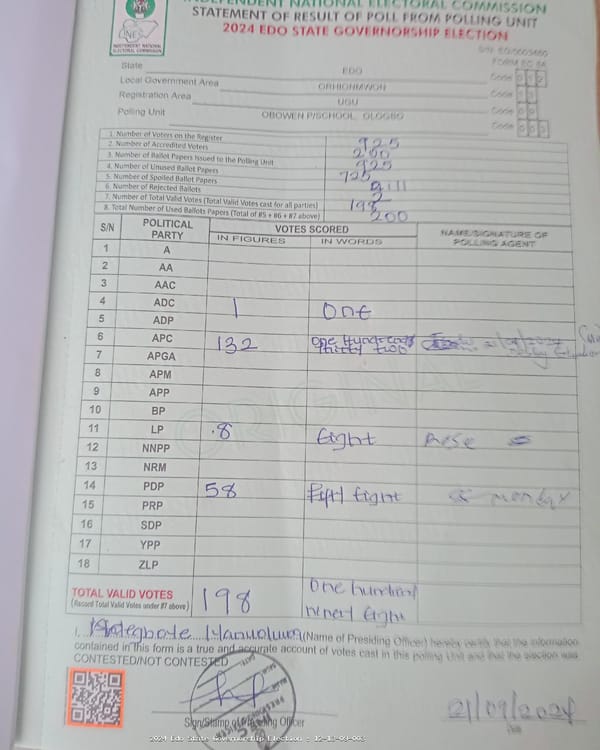 INDEPENDENT NATIONAL ELECTORAL COMMISSION
STATEMENT OF RESULT OF POLL FROM POLLING UNIT
2024 EDO STATE GOVERNORSHIP ELECTION
INDEPENDENT NATIONAL
ELECTORAL COMMISSION
FORM EC 8A
State EDO Code 1 2
Local Government Area ORHIONMWON Code 1 3
Registration Area UGU Code 0
Polling Unit OBOWEN P/SCHOOL, OLOGBO Code 0 0 3
1. Number of Voters on the Register 925
2. Number of Accredited Voters 200
3. Number of Ballot Papers Issued to the Polling Unit 925
4. Number of Unused Ballot Papers 725
5. Number of Spoiled Ballot Papers
6. Number of Rejected Ballots 2
7. Number of Total Valid Votes (Total Valid Votes cast for all parties) 198
8. Total Number of Used Ballots Papers (Total of #5 + #6 + #7 above) 200
S/N POLITICAL PARTY VOTES SCORED NAME/SIGNATURE OF POLLING AGENT
IN FIGURES IN WORDS
1 A
2 AA
3 AAC
4 ADC 1 One
5 ADP
6 APC 132 One Hundred thirty two
7 APGA
8 APM
9 APP
10 BP
11 LP 8 Eight
12 NNPP
13 NRM
14 PDP 58 Eight
15 PRP
16 SDP
17 YPP
18 ZLP
ORIGINAL
TOTAL VALID VOTES 198 One hundred
(Record Total Valid Votes under #7 above) Eight
I, (Name of Presiding Officer) hereby certify that the information
contained in this form is a true and accurate account of votes cast in this polling Unit and that the election was
CONTESTED/NOT CONTESTED
Sign/Stamp of Presiding Officer
21/09/2024
Date
2024 Edo State Governorship Election